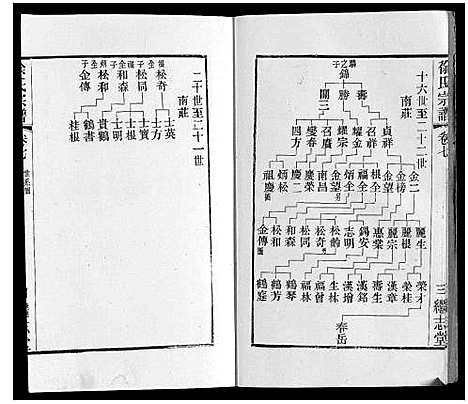 徐氏宗譜
卷七
三
繼志堂
十六世至二十二世
南莊
騰之子
錦
壽
勝
開二
貞祥
召祥
燿金
燿宗
召廣
燮春
四方
金二
金榜
金望
根全
福全
炳全
金望
南昌
慶榮
慶
炳松
祖慶
麗生
麗根
麗宗
惠棠
錫安
志明
松奇
松同
和森
松和
金傳
榮才
榮桂
漢章
壽生
漢銘
漢增
生林
福曾
福林
鶴琴
鶴芳
鶴庭
春岳
二十世至二十一世
南莊
松奇
松同
和森
松和
金傳
士英
士方
士寶
士根
士明
貴鶴
鶴書
桂根
卷七